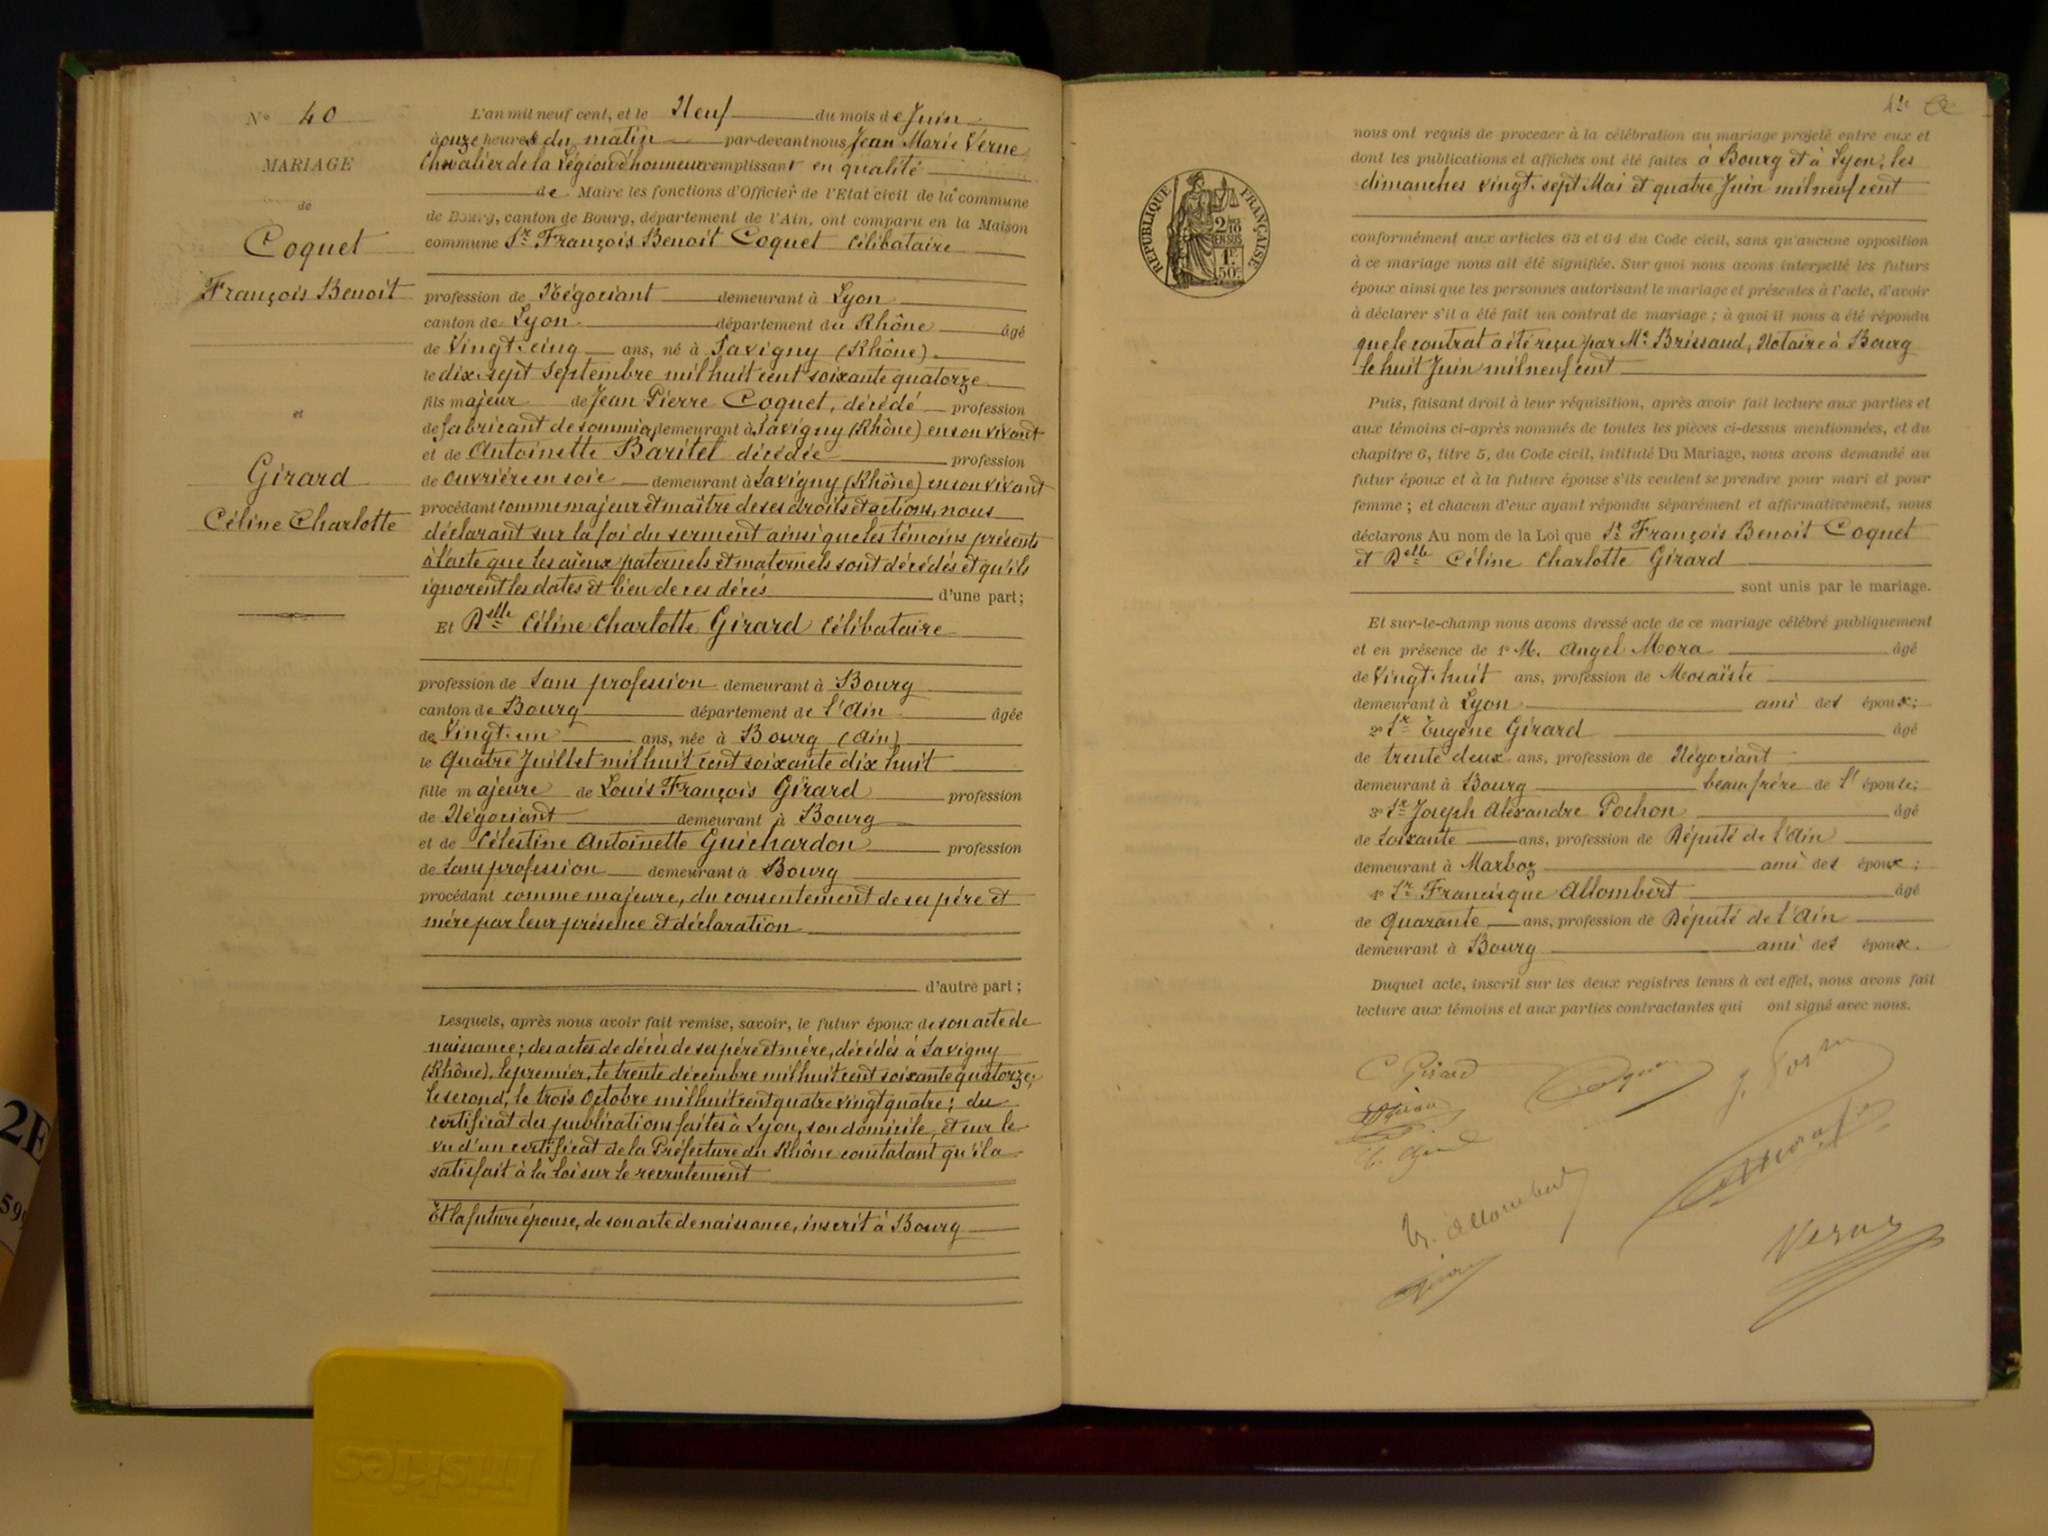 N° 40
MARIAGE
de
Coquet
François Benoit
et
Girard
Céline Charlotte
L'an mil neuf cent, et le Neuf du mois de Juin
à onze heures du matin par-devant nous Jean Marie Verne
Chevalier de la Légion d'honneur remplissant en qualité
de Maire les fonctions d'Officier de l'Etat civil de la commune
de Bourg, canton de Bourg, département de l'Ain, ont comparu en la Maison
commune Sr François Benoit Coquet célibataire
profession de Négociant demeurant à Lyon
canton de Lyon département du Rhône âgé
de Vingt-cinq ans, né à Savigny (Rhône)
le dix-sept Septembre mil huit cent soixante quatorze
fils majeur de Jean Pierre Coquet, décédé profession
de fabricant de sommier demeurant à Savigny (Rhône) en son vivant
et de Antoinette Baritel décédée profession
de ouvrière en soie demeurant à Savigny (Rhône) en son vivant
procédant comme majeur et maître de ses droits et actions, nous
déclarant sur la foi du serment ainsi que les témoins présents
à l'acte que les aïeux paternels et maternels sont décédés et qu'ils
ignorent les dates et lieu de ces décès d'une part;
Et Delle Céline Charlotte Girard célibataire
profession de Sans profession demeurant à Bourg
canton de Bourg département de l'Ain âgée
de Vingt-un ans, née à Bourg (Ain)
le Quatre Juillet mil huit cent soixante dix huit
fille majeure de Louis François Girard profession
de Négociant demeurant à Bourg
et de Célestine Antoinette Guichardon profession
de Sans profession demeurant à Bourg
procédant comme majeure, du consentement de ses père et
mère par leur présence et déclaration
d'autre part;
Lesquels, après nous avoir fait remise, savoir, le futur époux de son acte de
naissance; des actes de décès de ses père et mère, décédés à Savigny
(Rhône), le premier, le trente décembre mil huit cent soixante quatorze;
le second, le trois Octobre mil huit cent quatre vingt quatre; du
certificat des publications faites à Lyon, son domicile, et sur le
vu d'un certificat de la Préfecture du Rhône constatant qu'il a
satisfait à la loi sur le recrutement
Et la future épouse, de son acte de naissance, inscrit à Bourg
REPUBLIQUE FRANÇAISE
2/10 EN SUS
1F 50c
nous ont requis de procéder à la célébration du mariage projeté entre eux et
dont les publications et affiches ont été faites à Bourg et à Lyon, les
dimanches vingt-sept Mai et quatre Juin mil neuf cent
conformément aux articles 63 et 64 du Code civil, sans qu'aucune opposition
à ce mariage nous ait été signifiée. Sur quoi nous avons interpellé les futurs
époux ainsi que les personnes autorisant le mariage et présentes à l'acte, d'avoir
à déclarer s'il a été fait un contrat de mariage; à quoi il nous a été répondu
que le contrat a été reçu par Me Brissaud, Notaire à Bourg
le huit Juin mil neuf cent
Puis, faisant droit à leur réquisition, après avoir fait lecture aux parties et
aux témoins ci-après nommés de toutes les pièces ci-dessus mentionnées, et du
chapitre 6, titre 5, du Code civil, intitulé Du Mariage, nous avons demandé au
futur époux et à la future épouse s'ils veulent se prendre pour mari et pour
femme; et chacun d'eux ayant répondu séparément et affirmativement, nous
déclarons Au nom de la Loi que Sr François Benoit Coquet
et Delle Céline Charlotte Girard
sont unis par le mariage.
Et sur-le-champ nous avons dressé acte de ce mariage célébré publiquement
et en présence de 1° M. Angel Mora âgé
de Vingt-huit ans, profession de Mosaïste
demeurant à Lyon ami des époux;
2° Sr Eugène Girard âgé
de trente deux ans, profession de Négociant
demeurant à Bourg beau frère de l'épouse;
3° Sr Joseph Alexandre Pochon âgé
de Soixante ans, profession de Député de l'Ain
demeurant à Marboz ami des époux;
4° Sr Francisque Allombert âgé
de Quarante ans, profession de Député de l'Ain
demeurant à Bourg ami des époux.
Duquel acte, inscrit sur les deux registres tenus à cet effet, nous avons fait
lecture aux témoins et aux parties contractantes qui ont signé avec nous.
C. Girard
Fr. Allombert
Verne
Inskies